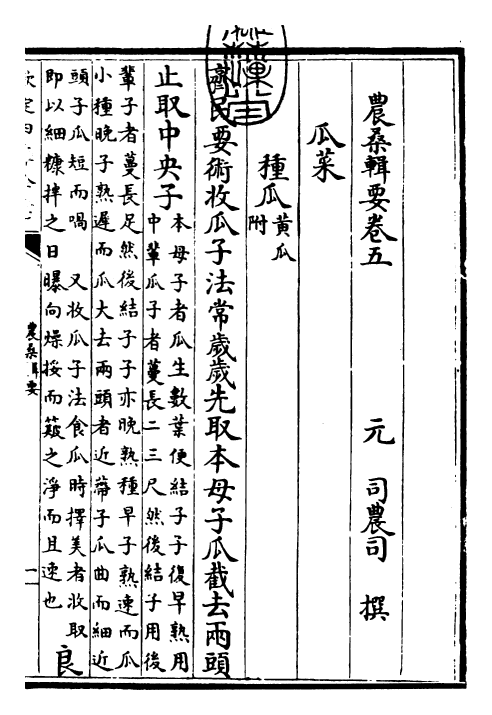 農桑輯要卷五
元 司農司 撰
瓜菜
種瓜 黃瓜附
齊民要術收瓜子法常歲歲先取本母子瓜截去兩頭
止取中央子
本母子者瓜生數葉便結子子復早熟用
中輩瓜子者蔓長二三尺然後結子用後
輩子者蔓長足然後結子子亦晚熟種早子熟速而瓜
小種晚子熟遲而瓜大去兩頭者近蒂子瓜曲而細近
頭子瓜短而喎 又收瓜子法食瓜時擇美者收取
即以細糠拌之日曝向燥挼而簸之淨而且速也
良
農桑輯要
一